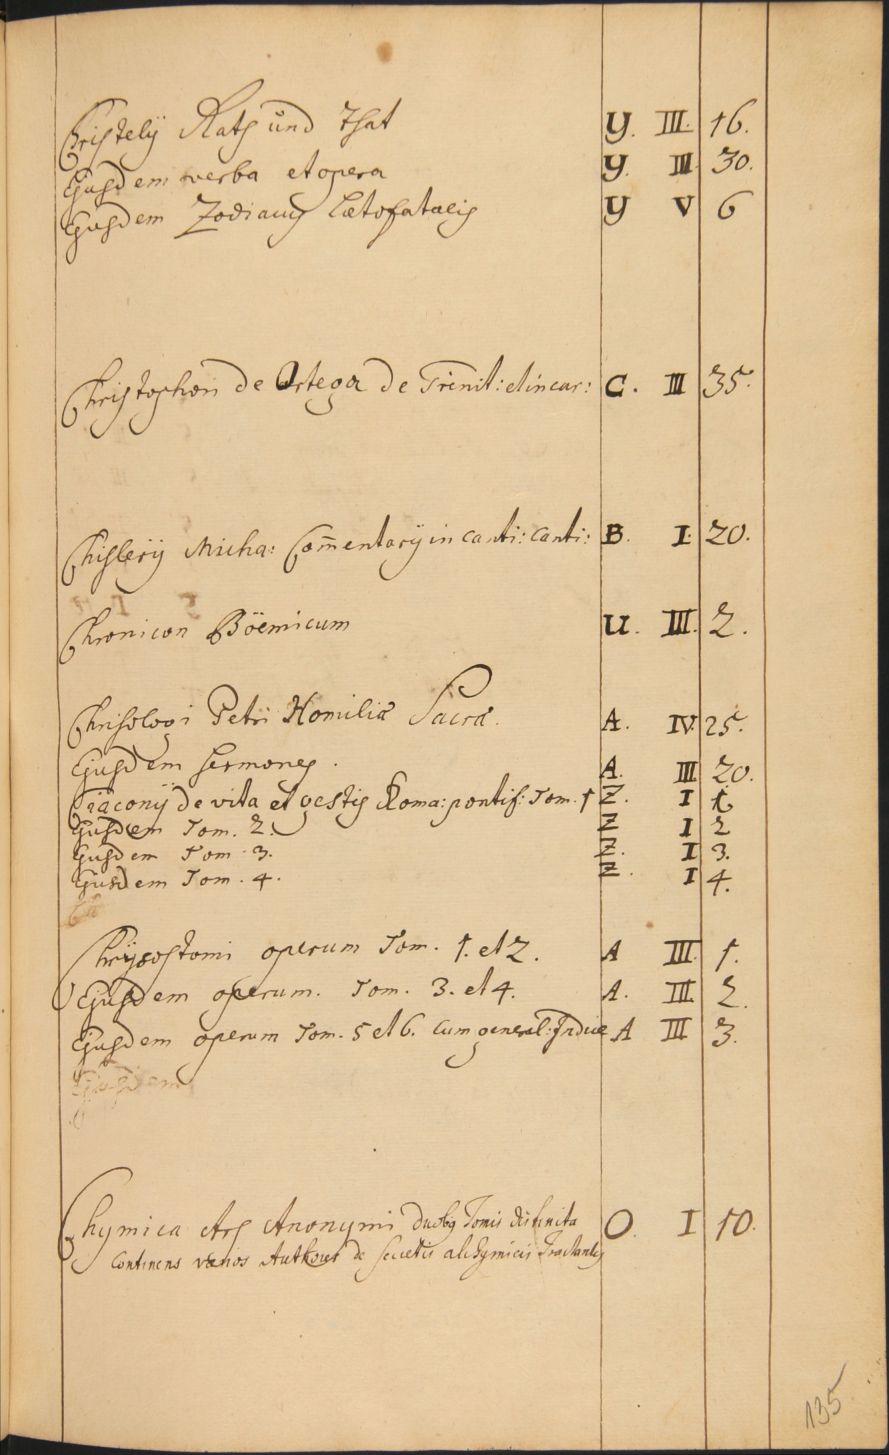 Christelÿ Rath und That Y. III. 16.
Ejusdem verba et opera Y. III. 30.
Ejusdem Zodiacus Laetofatalis Y V 6
Christophori de Ortega de Trinit: et incar: C. III 35.
Chislerÿ Micha: Com̄entarÿ in canti: canti: B. I. 20.
Chronicon Böemicum U. III. 2.
Chrisologi Petri Homiliæ Sacræ. A. IV. 25.
Ejusdem sermones. A. III 20.
Ciaconÿ de vita et gestis Roma: pontif: Tom. 1 Z. I 1.
Ejusdem Tom. 2. Z I 2
Ejusdem Tom. 3. Z. I 3.
Ejusdem Tom. 4. Z. I 4.
Chrÿsostomi operum Tom. 1. et 2. A III. 1.
Ejusdem operum. Tom. 3. et 4. A. III. 2.
Ejusdem operum Tom. 5 et 6. cum general: Indice A III 3.
Ejusdem
Chymica Ars Anonymi duobq Tomis distincta O. I 10.
continens varios Authores de secretis alchymicis Tractantes
135